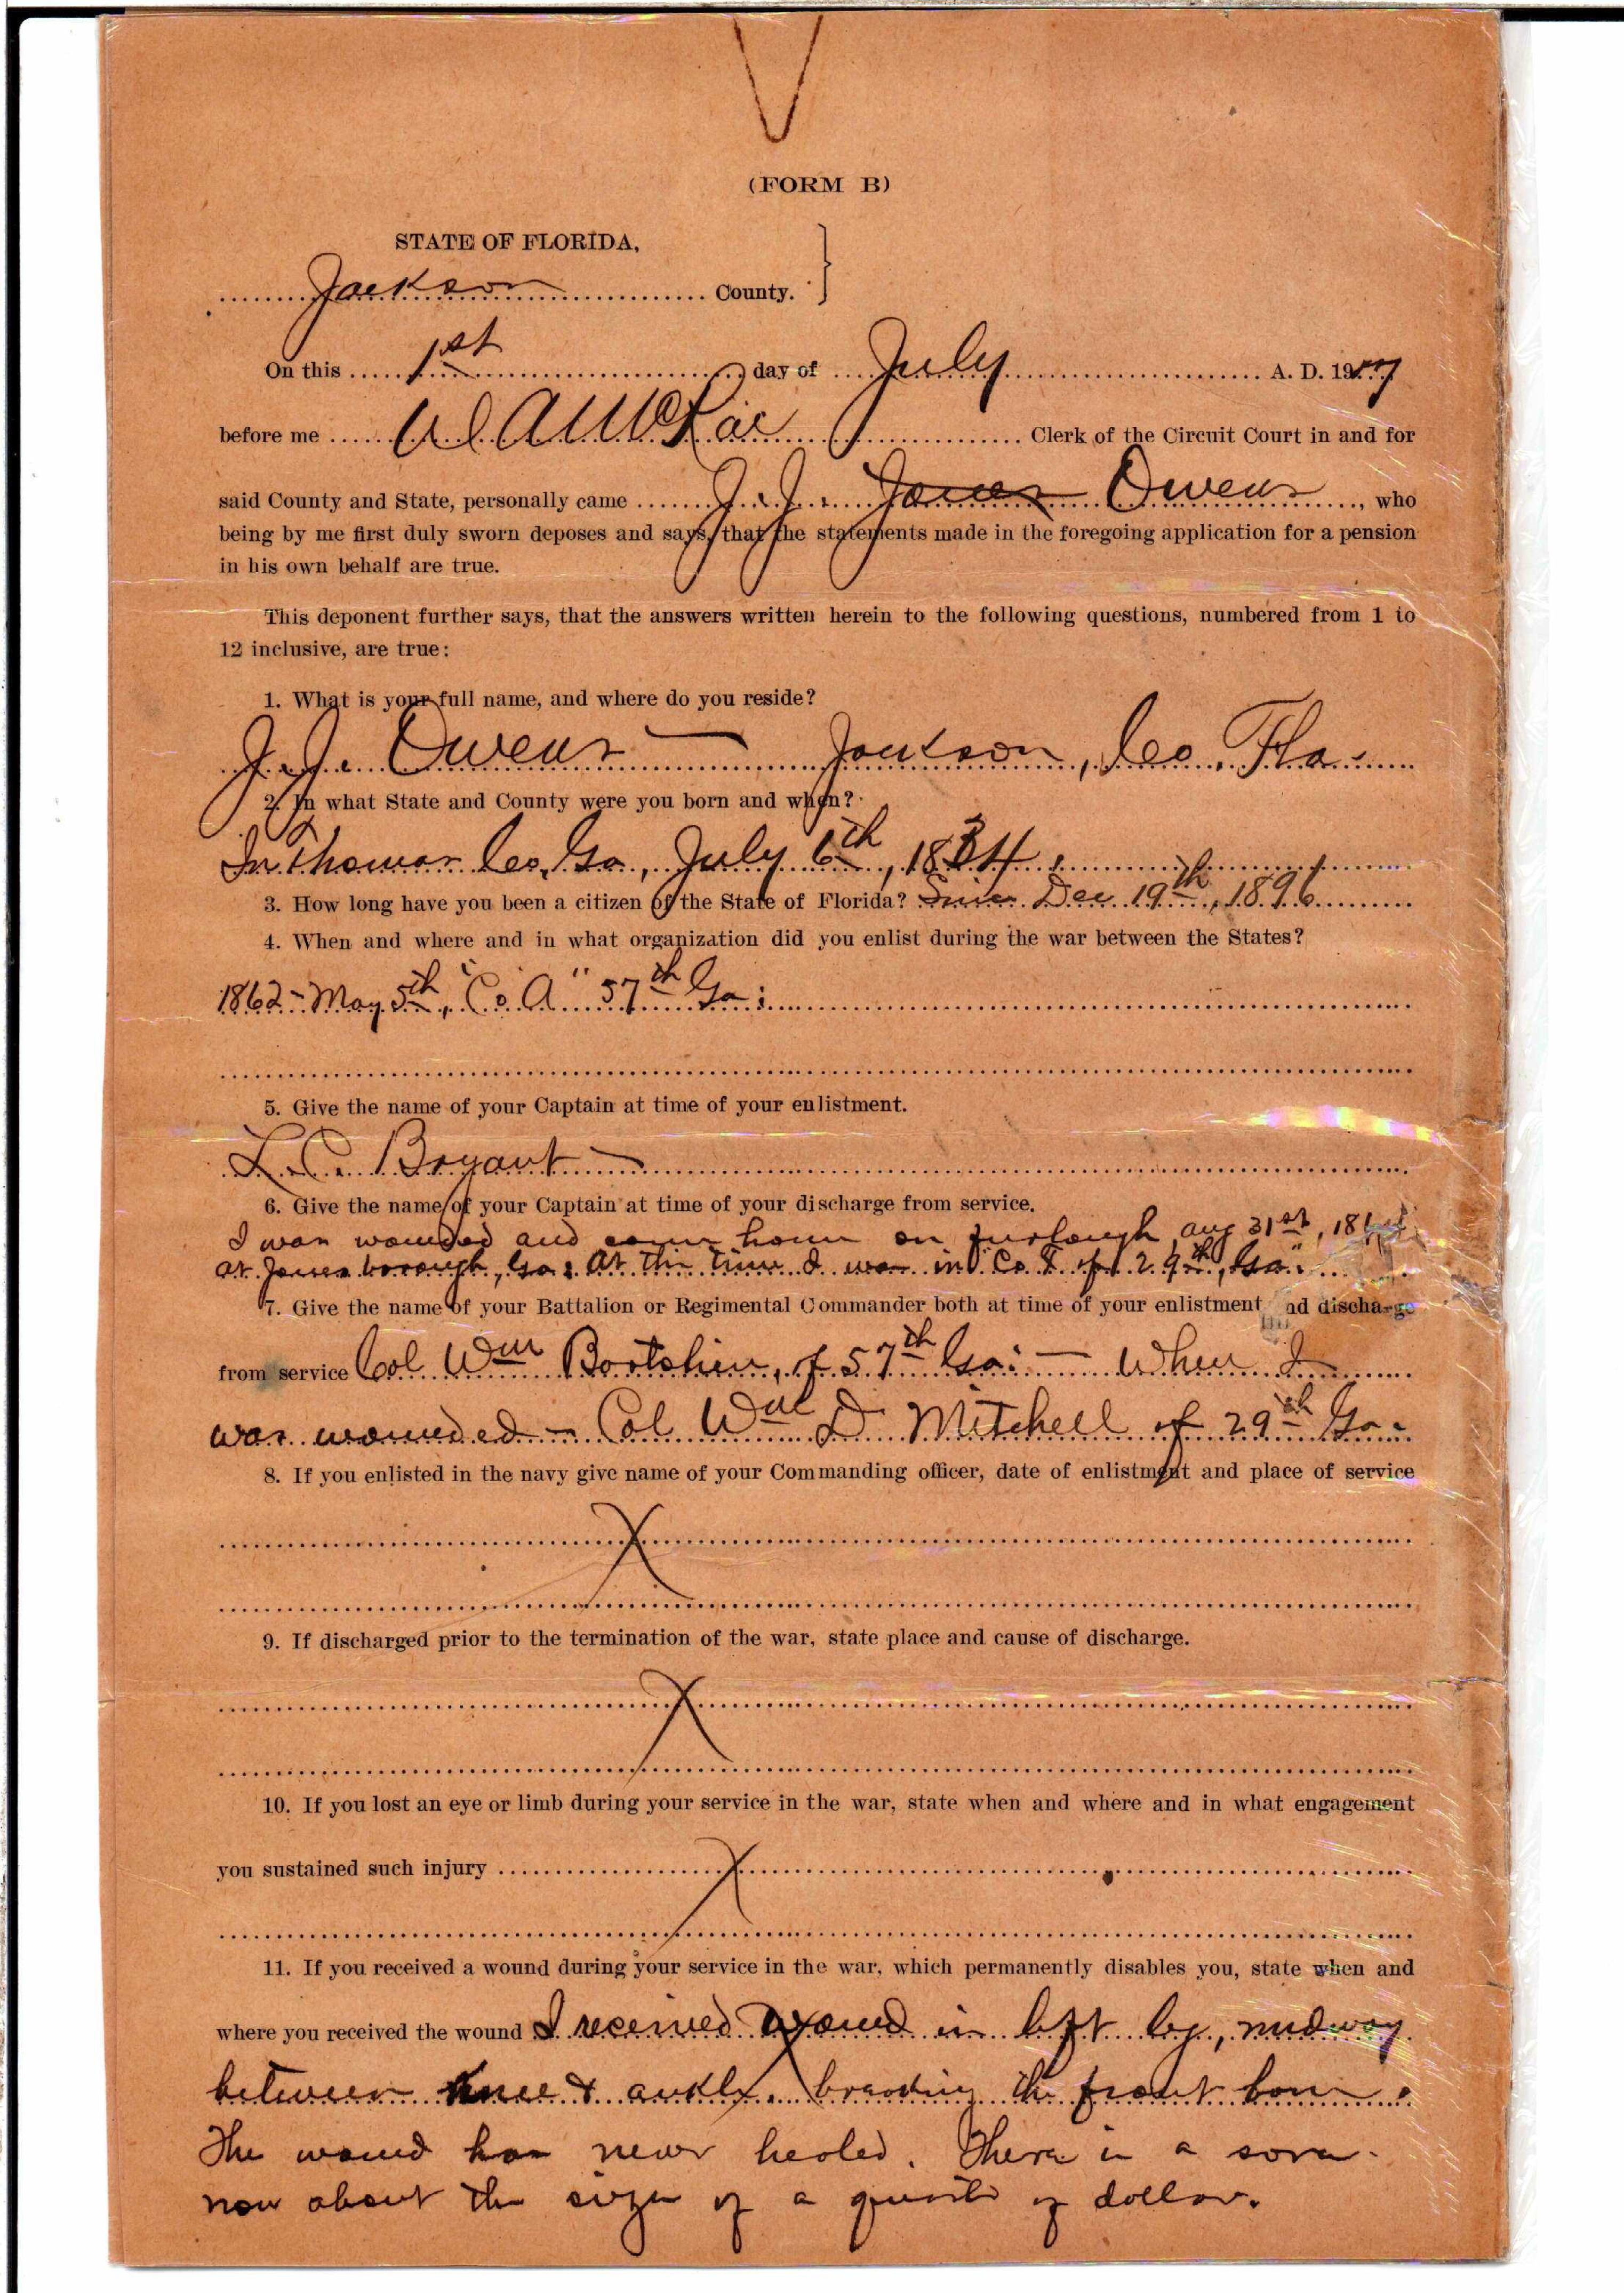 (FORM B)
STATE OF FLORIDA,
Jackson County.
On this 1st day of July A. D. 19
before me Clerk of the Circuit Court in and for
said County and State, personally came J. J. Jones Owens, who
being by me first duly sworn deposes and says, that the statements made in the foregoing application for a pension
in his own behalf are true.
This deponent further says, that the answers written herein to the following questions, numbered from 1 to
12 inclusive, are true:
1. What is your full name, and where do you reside?
J. J. Owens — Jackson, Co. Fla.
2. In what State and County were you born and when?
In Thomas Co. Ga, July 6th, 1834.
3. How long have you been a citizen of the State of Florida? Since Dec 19th, 1896
4. When and where and in what organization did you enlist during the war between the States?
1862 - May 5th, "Co A" 57th Ga:
5. Give the name of your Captain at time of your enlistment.
L. C. Bryant —
6. Give the name of your Captain at time of your discharge from service.
I was wounded and came home on furlough, Aug 31st, 1864
at Jonesborough, Ga: At this time I was in Co. I of 29th, Ga.
7. Give the name of your Battalion or Regimental Commander both at time of your enlistment nd discharge
from service Col Wm of 57th Ga: — When I
was wounded — Col Wm D Mitchell of 29th Ga.
8. If you enlisted in the navy give name of your Commanding officer, date of enlistment and place of service
X
9. If discharged prior to the termination of the war, state place and cause of discharge.
X
10. If you lost an eye or limb during your service in the war, state when and where and in what engagement
you sustained such injury X
11. If you received a wound during your service in the war, which permanently disables you, state when and
where you received the wound I received wound in left leg, midway
between knee & ankle, breaking the front bone.
The wound has never healed. There is a sore
now about the size of a quarter of dollar.